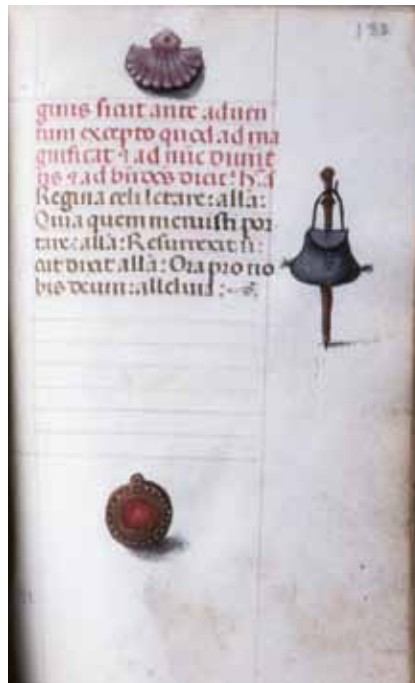 ginis sicut ante aduen
tum excepto quod ad ma
gnificat ⁊ ad nūc dimit
tis ⁊ ad b̄n̄dc̄s dicit᷑
Regina celi letare: alla:
Quia quem meruisti por
tare: alla: Resurrexit si
cut dixit alla: Ora pro no
bis deum: alleluia: